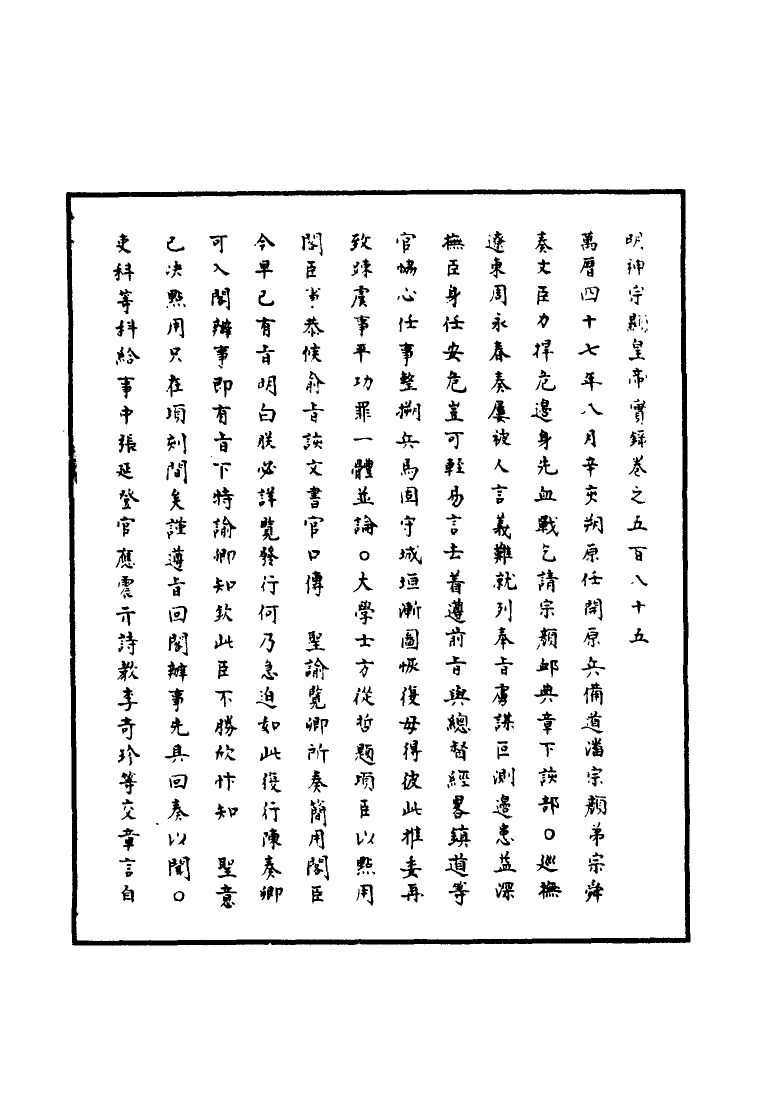 明神宗顯皇帝實錄卷之五百八十五
萬曆四十七年八月辛亥朔原任開原兵備道潘宗顏弟宗舜
奏文臣力捍危邊身先血戰乞請宗顏卹典章下該部○巡撫
遼東周永春奏屢被人言義難就列奉旨虜謀叵測邊患益深
撫臣身任安危豈可輕易言去着遵前旨與總督經畧鎮道等
官恊心任事整搠兵馬固守城垣漸圖恢復毋得彼此推委再
致踈虞事平功罪一體並論○大學士方從哲題項臣以點用
閣臣事恭候俞旨該文書官口傳　聖諭覽卿所奏簡用閣臣
今早已有旨明白朕必詳覧發行何乃急迫如此復行陳奏卿
可入閣辦事即有旨下特諭卿知欽此臣不勝欣忭知　聖意
已决點用只在項刻間矣謹遵旨回閣辦事先具回奏以聞○
吏科等科給事中張延登官應震亓詩教李奇珍等交章言自